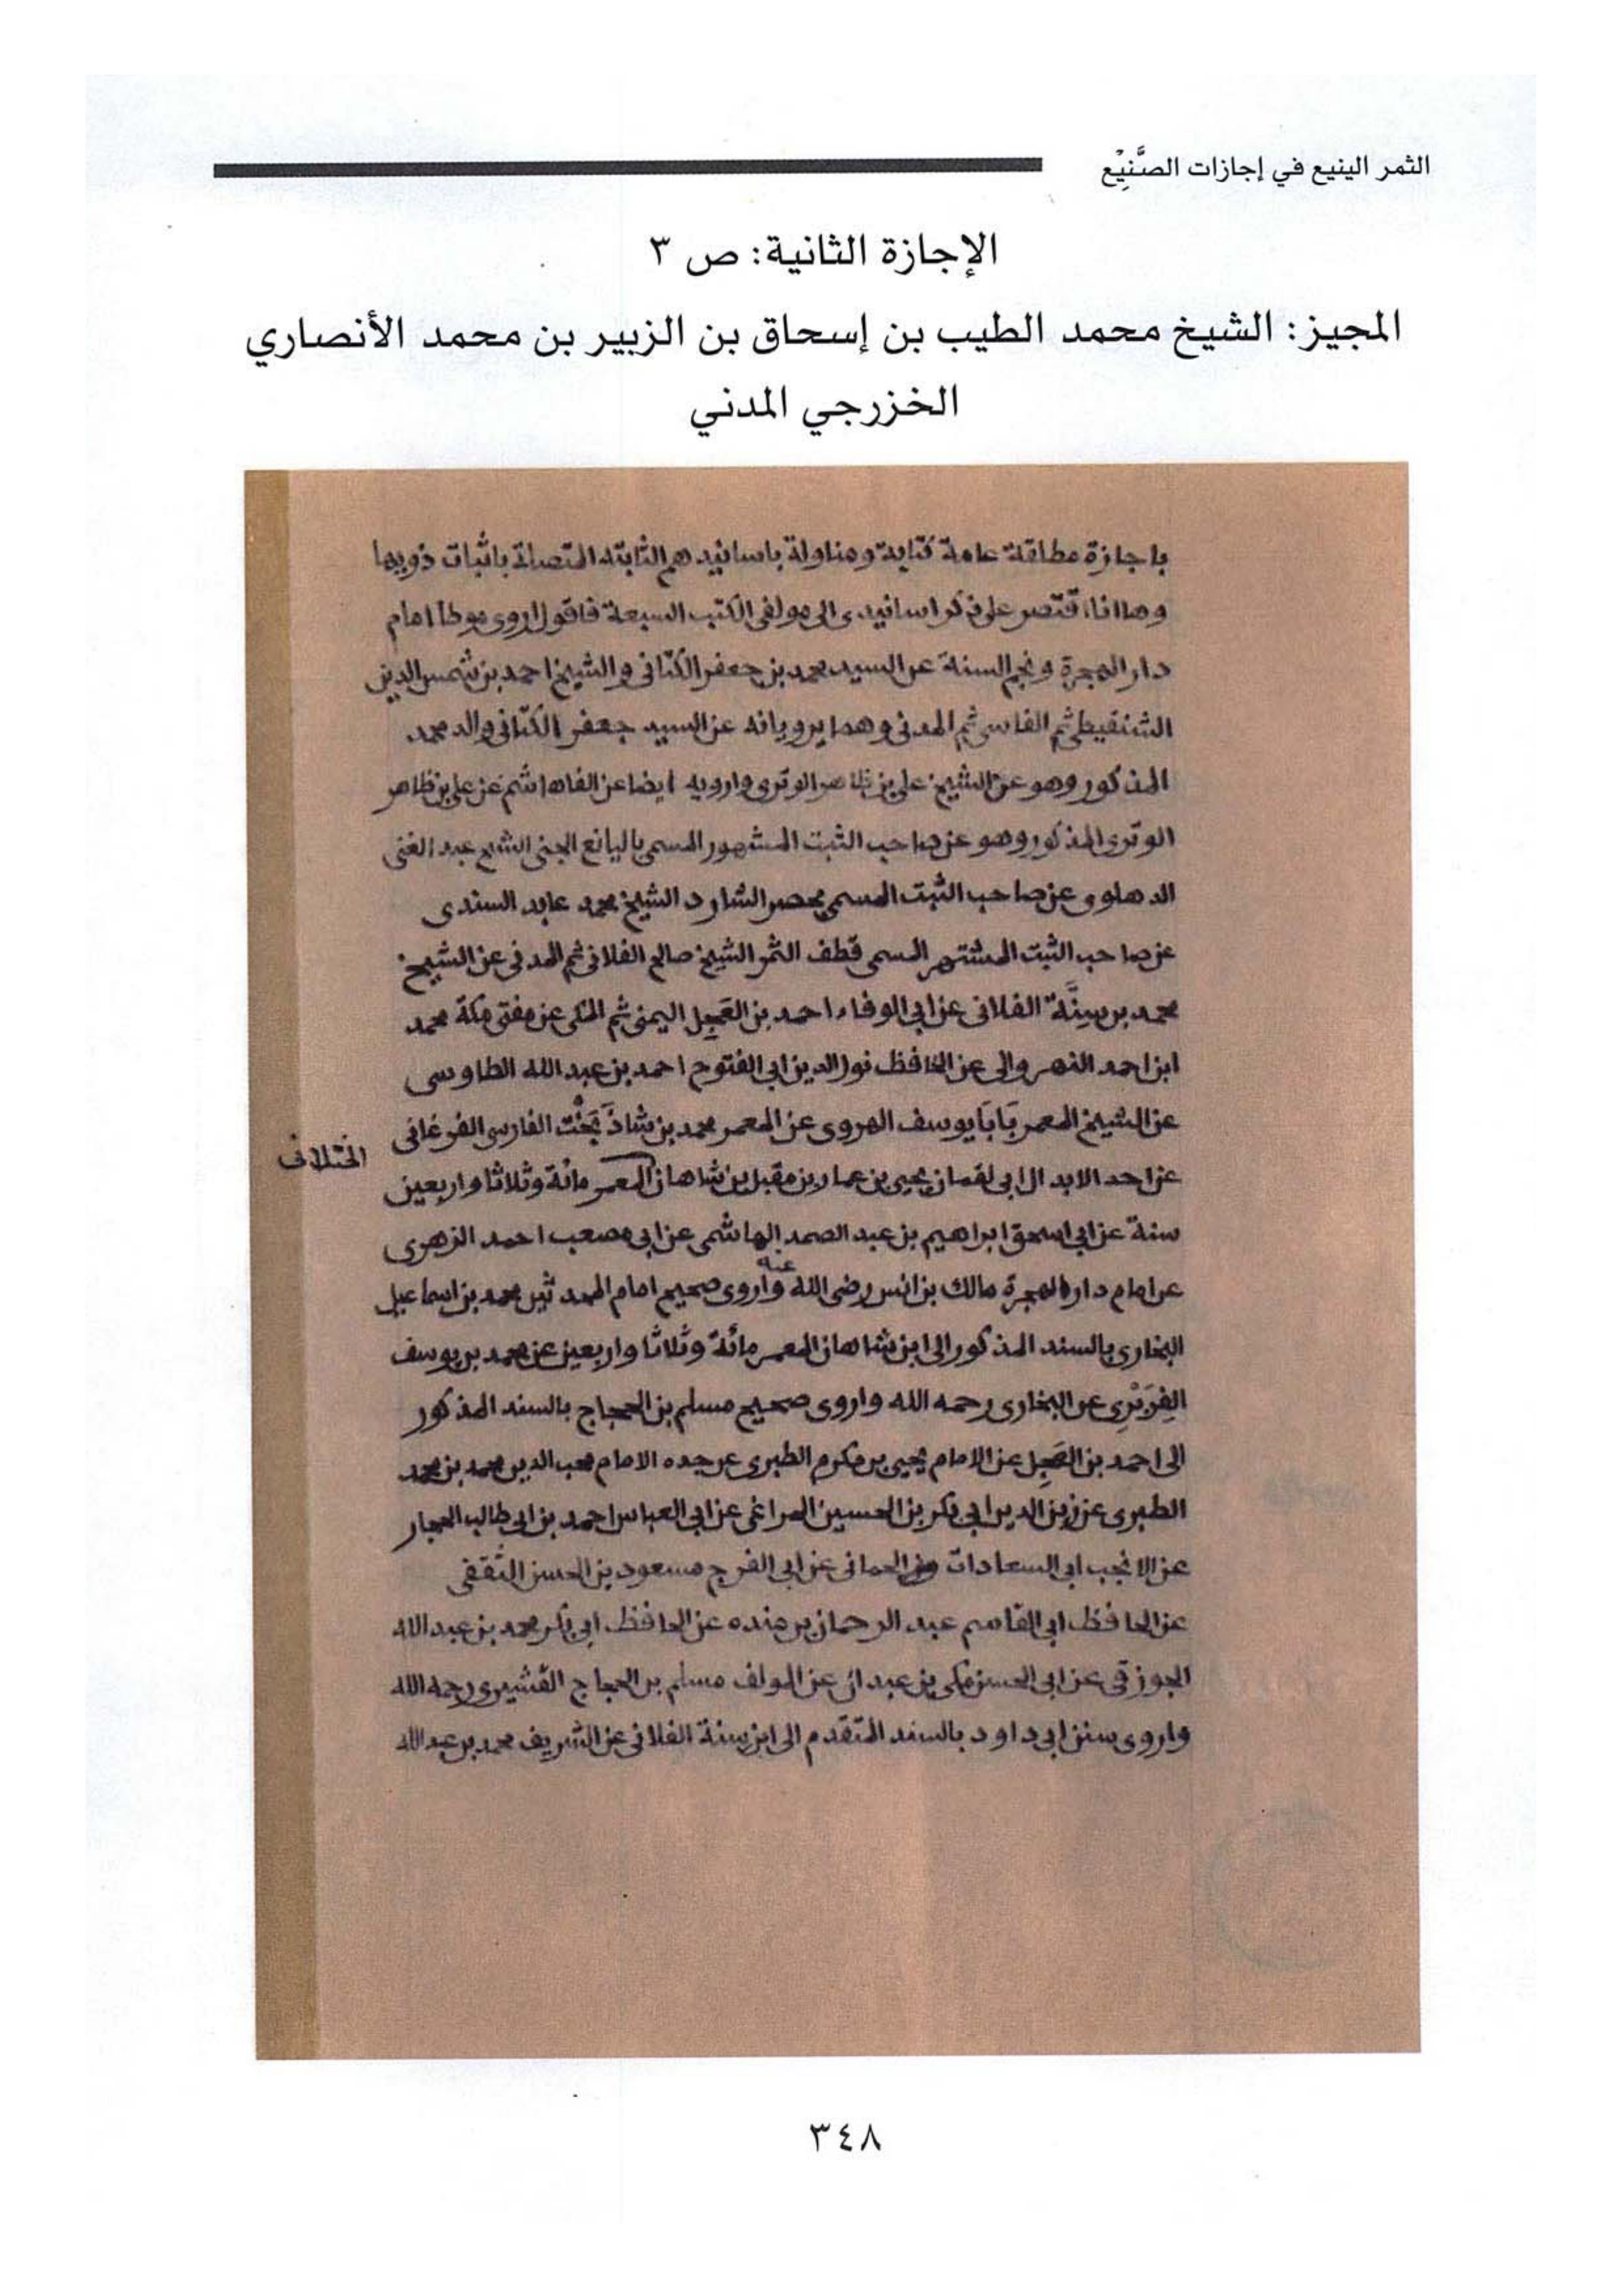 الثمر الينيع في إجازات الصَّنِيْع
الإجازة الثانية: ص ٣
المجيز: الشيخ محمد الطيب بن إسحاق بن الزبير بن محمد الأنصاري
الخزرجي المدني
باجازة مطلقة عامة كتابة ومناولة باسانيدهم الثابتة المتصلة باثبات ذويها
وها انا اقتصر على ذكر اسانيدى الى مولفى الكتب السبعة فاقول اروى موطأ امام
دار الهجرة ونجم السنة عن السيد محمد بن جعفر الكتانى والشيخ احمد بن شمس الدين
الشنقيطى ثم الفاسى ثم المدنى وهما يرويانه عن السيد جعفر الكتانى والد محمد
المذكور وهو عن الشيخ على بن ظاهر الوترى وارويه ايضا عن الفاهاشم عن على بن ظاهر
الوترى المذكور وهو عن صاحب الثبت المشهور المسمى باليانع الجنى الشيخ عبد الغنى
الدهلوى عن صاحب الثبت المسمى بحصر الشارد الشيخ محمد عابد السندى
عن صاحب الثبت المشتهر المسمى قطف الثمر الشيخ صالح الفلانى ثم المدنى عن الشيخ
محمد بن سِنَّة الفلانى عن ابى الوفاء احمد بن العَجِل اليمنى ثم المكى عن مفتى مكة محمد
ابن احمد النهروالى عن الحافظ نور الدين ابى الفتوح احمد بن عبد الله الطاوسى
عن الشيخ المعمر بَابَا يوسف الهروى عن المعمر محمد بن شاذَ بَخْت الفارسى الفرغانى
عن احد الابدال ابى لقمان يحيى بن عمار بن مقبل بن شاهان المعمر مائة وثلاثا واربعين
الختلانى
سنة عن ابى اسحق ابراهيم بن عبد الصمد الهاشمى عن ابى مصعب احمد الزهرى
عن امام دار الهجرة مالك بن انس رضى الله عنه واروى صحيح امام المحدثين محمد بن اسماعيل
البخارى بالسند المذكور الى ابن شاهان المعمر مائة وثلاثا واربعين عن محمد بن يوسف
الفِرَبْرِى عن البخارى رحمه الله واروى صحيح مسلم بن الحجاج بالسند المذكور
الى احمد بن العَجِل عن الامام يحيى بن مكرم الطبرى عن جده الامام محب الدين محمد بن محمد
الطبرى عن زين الدين ابى بكر بن الحسين المراغى عن ابى العباس احمد بن ابى طالب الحجار
عن الانجب ابى السعادات الحمانى عن ابى الفرج مسعود بن الحسن الثقفى
عن الحافظ ابى القاسم عبد الرحمان بن منده عن الحافظ ابى بكر محمد بن عبد الله
الجوزقى عن ابى الحسن مكى بن عبدان عن المولف مسلم بن الحجاج القشيرى رحمه الله
واروى سنن ابى داود بالسند المتقدم الى ابن سنة الفلانى عن الشريف محمد بن عبد الله
٣٤٨